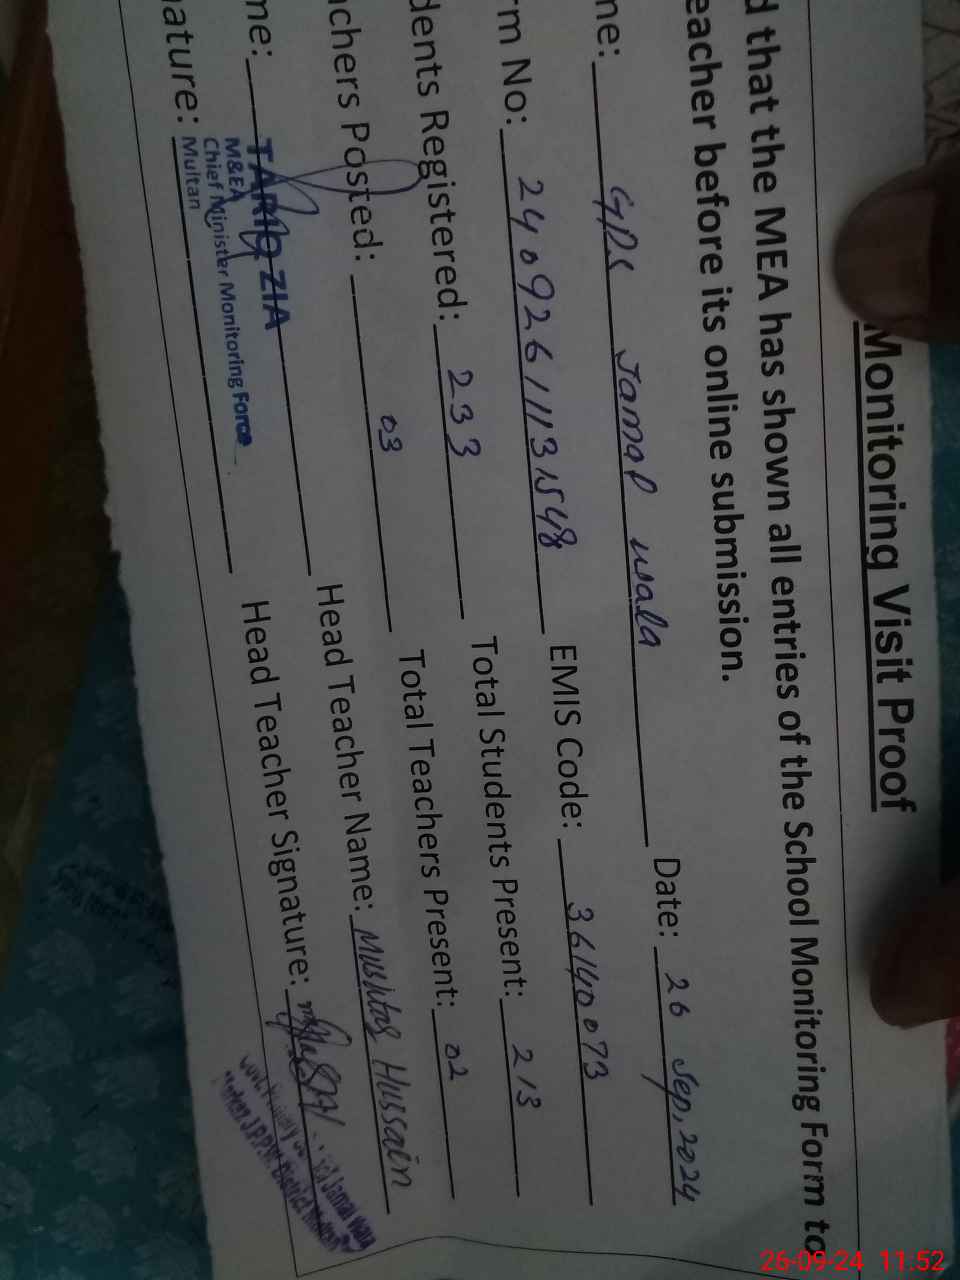 Monitoring Visit Proof
d that the MEA has shown all entries of the School Monitoring Form to
eacher before its online submission.
me: GPS Jamal wala Date: 26 Sep, 2024
rm No: 24092611131548 EMIS Code: 36140073
dents Registered: 233 Total Students Present: 213
achers Posted: 03 Total Teachers Present: 02
me: TARIQ ZIA Head Teacher Name: Hussain
M&EA
Chief Minister Monitoring Force
Multan
nature: Head Teacher Signature:
Jamal Wala
26-09-24 11:52